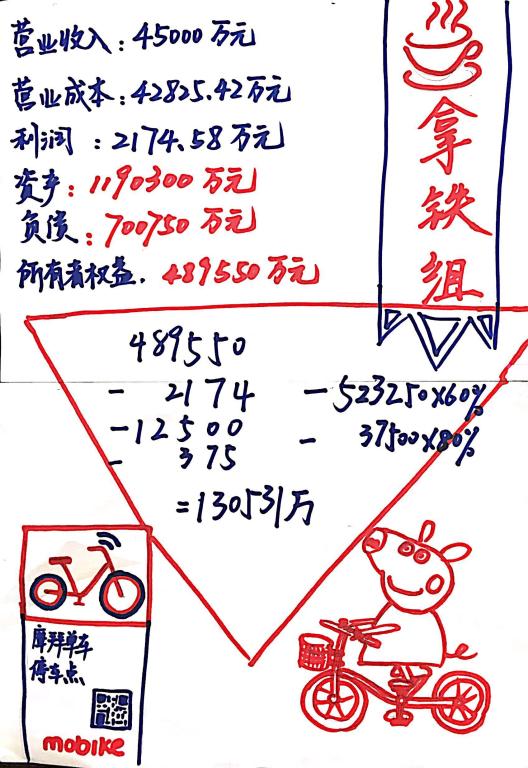 营业收入：45000万元
营业成本：42825.42万元
利润：2174.58万元
资产：1190300万元
负债：700750万元
所有者权益．489550万元
拿铁组
489550
- 2174 - 523250×60%
- 12500 - 37500×80%
- 375
=130531万
摩拜单车
停车点
mobike